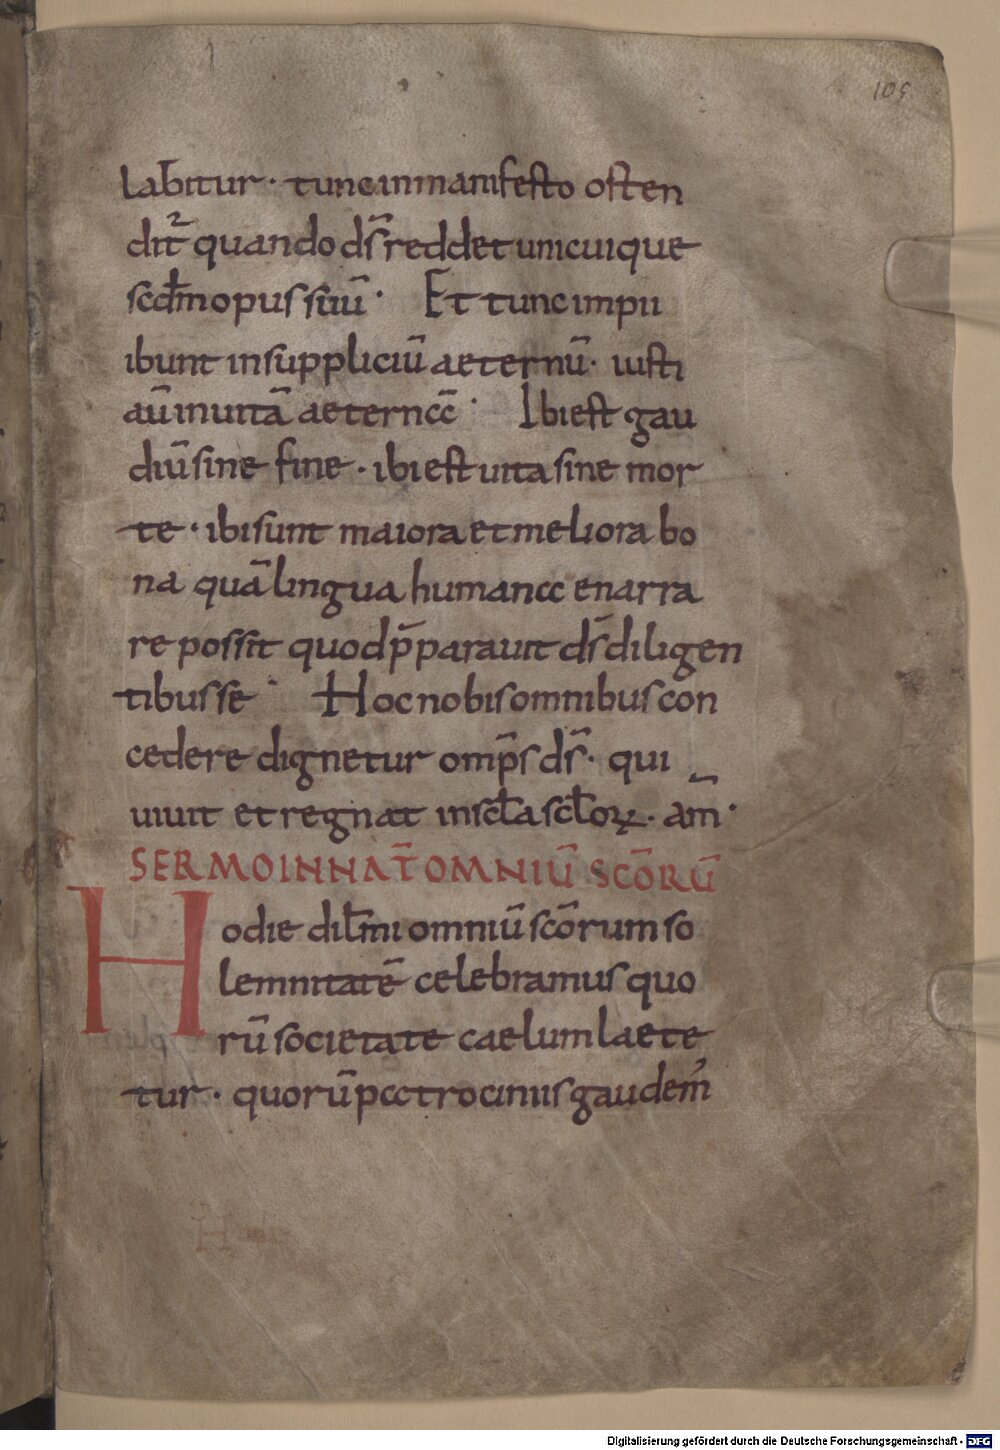 105
labitur · tunc in manifesto osten
dit᷑ quando ds̄ reddet unicuique
scdm̄ opus suū · Et tunc impii
ibunt in suppliciū aeternū · iusti
aū in uitā aeternā · Ibi est gau
diū sine fine · ibi est uita sine mor
te · ibi sunt maiora et meliora bo
na quā lingua humana enarra
re possit quod p̄parauit ds̄ diligen
tibus se · Hoc nobis omnibus con
cedere dignetur omp̄s ds̄ · qui
uiuit et regnat in scl̄a scl̄oꝝ · am̄ ·
SERMO IN NAT̄ OMNIŪ SCŌRŪ
Hodie dil̄mi omniū scōrum so
lemnitatē celebramus quo
rū societate caelum laete
tur · quorū patrociniis gaudem᾽
Digitalisierung gefördert durch die Deutsche Forschungsgemeinschaft - DFG